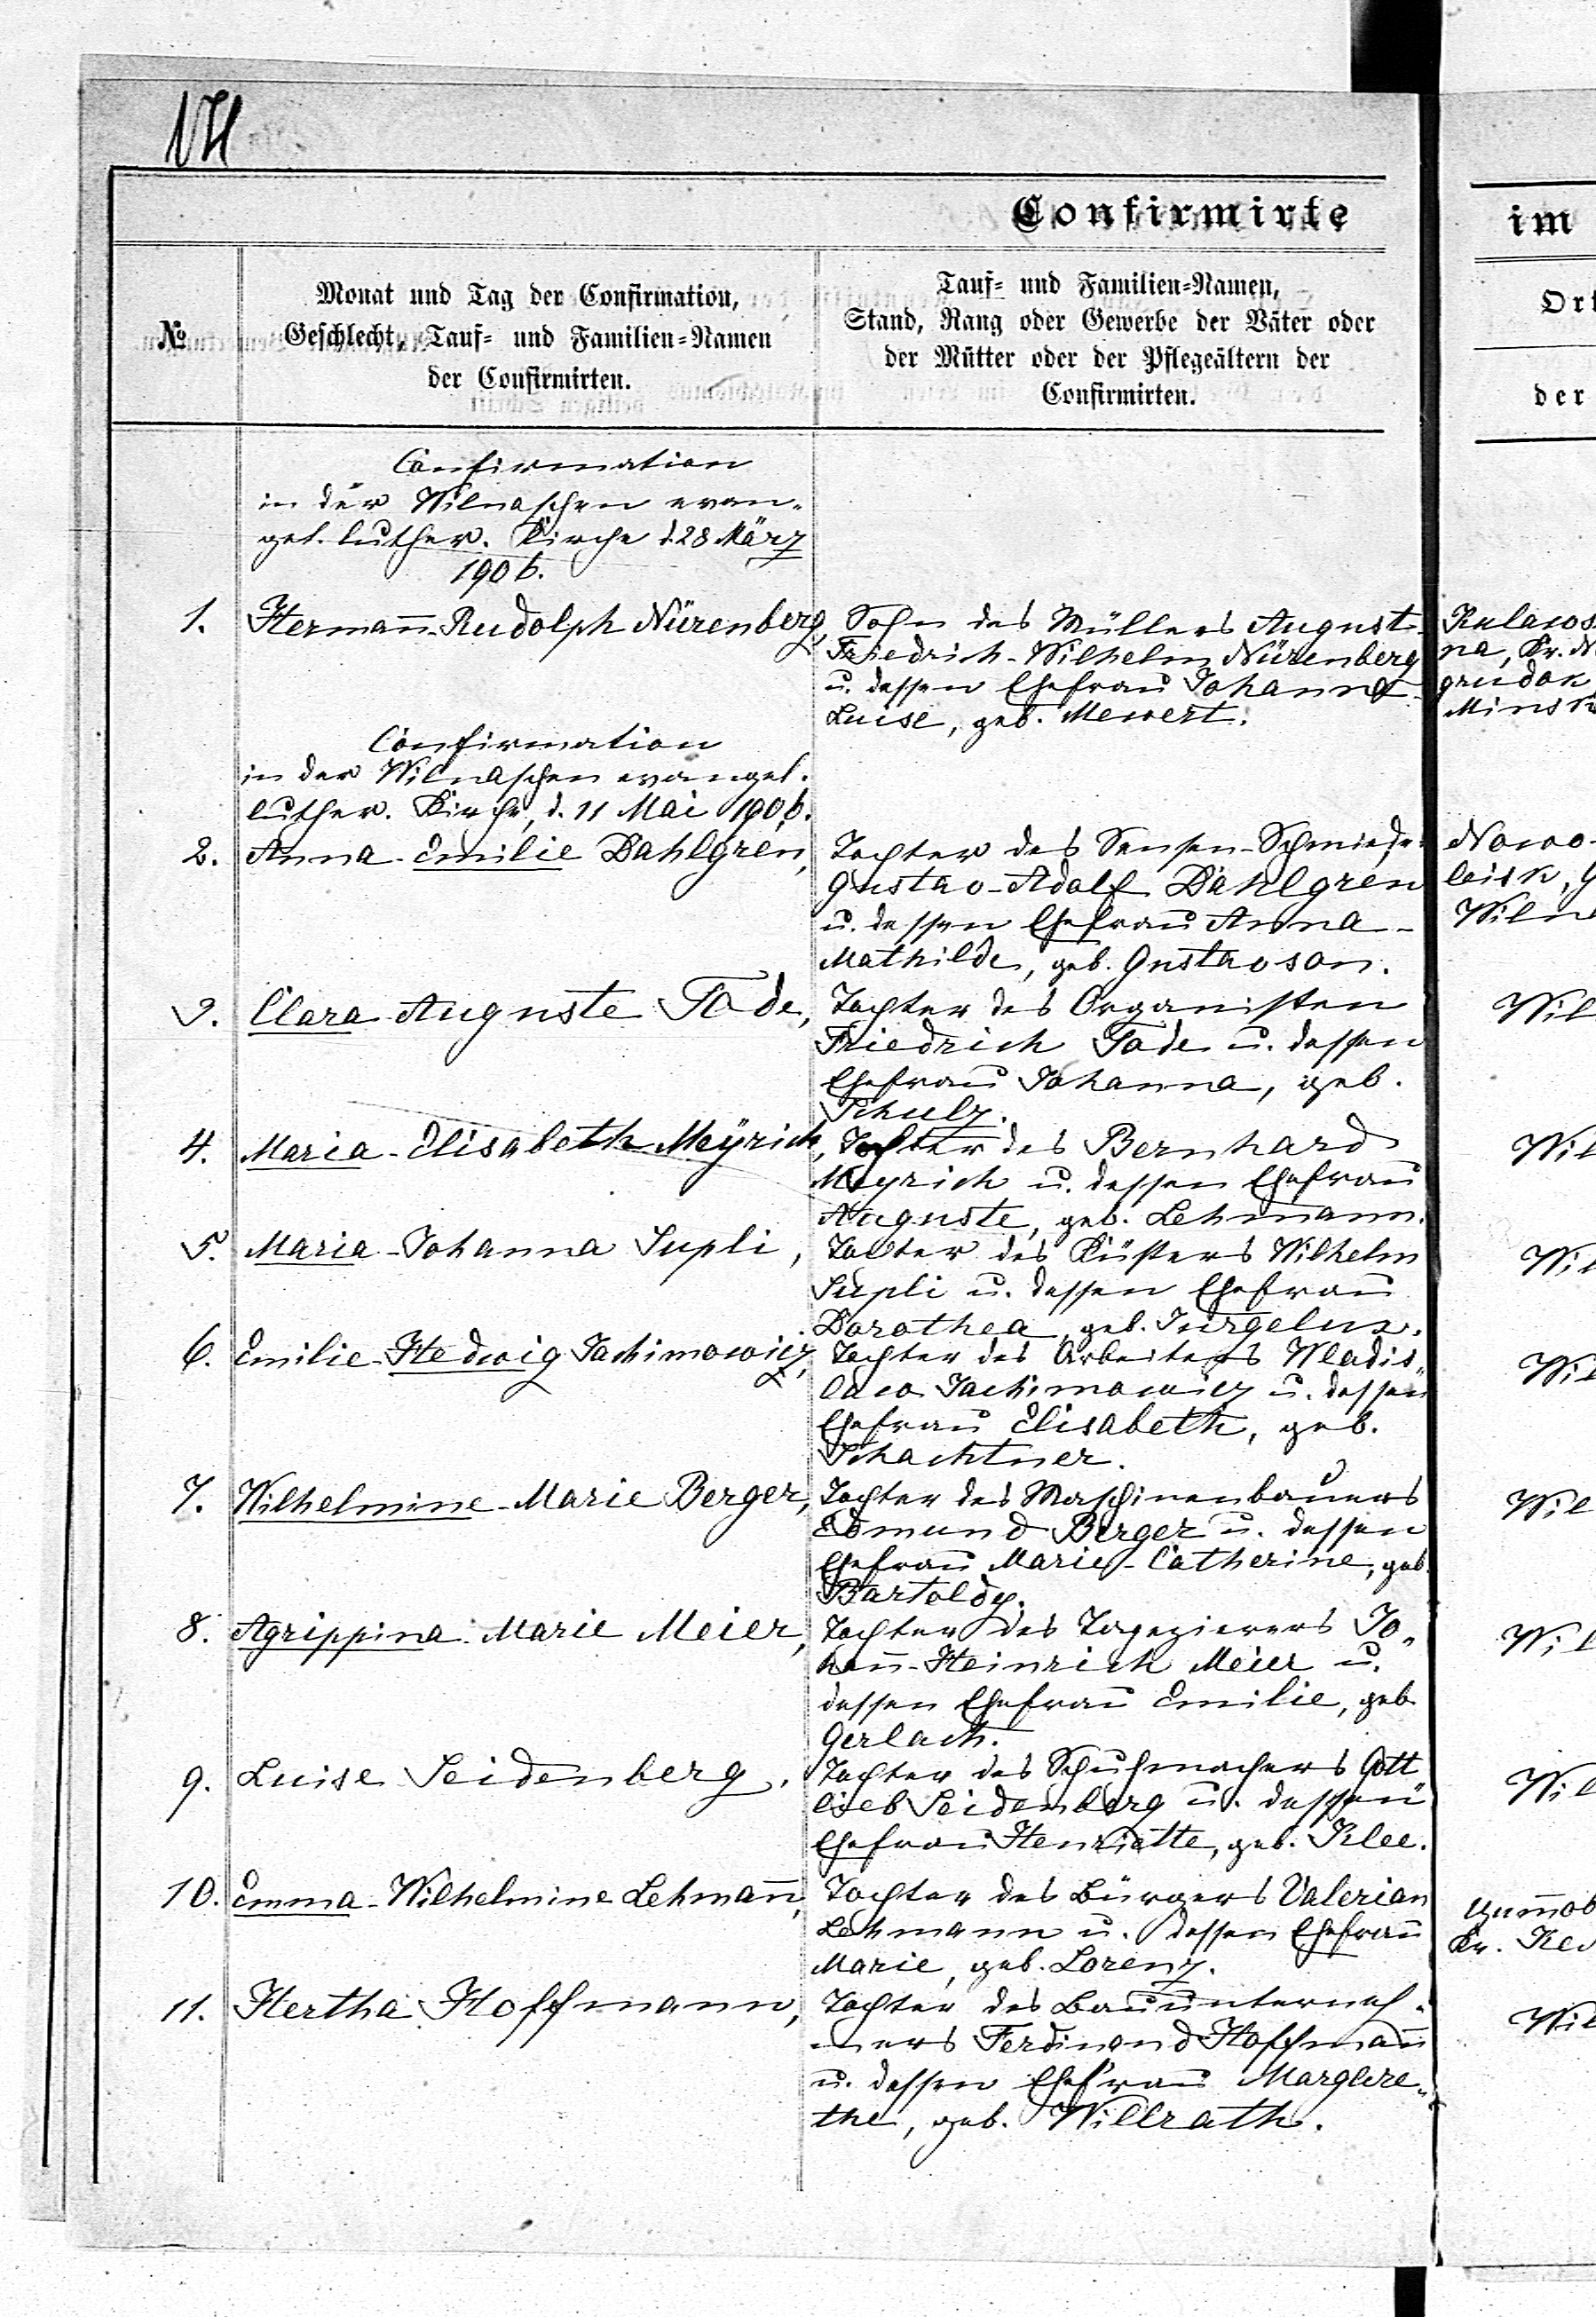 174
Confirmirte
im
№
Monat und Tag der Confirmation,
Geschlecht, Tauf- und Familien-Namen
der Confirmirten.
Tauf- und Familien-Namen,
Stand, Rang oder Gewerbe der Väter oder
der Mütter oder der Pflegeältern der
Confirmirten.
Ort
der
Confirmation
in der Wilnaschen evan-
gel. luther. Kirche d. 28 März
1906.
1. Hermann-Rudolph Nürenberg,
Sohn des Müllers August-
Friedrich-Wilhelm Nürenberg
u. dessen Ehefrau Johanna-
Luise, geb. Mewert.
na, Kr. N
grudok
Minsk
Confirmation
in der Wilnaschen evangel.
luther. Kirche, d. 11 Mai 1906.
2. Anna-Emilie Dahlgren,
Tochter des Sensen-Schmiedes
Gustav-Adolf Dahlgren
u. dessen Ehefrau Anna-
Mathilde, geb. Gustavson.
Nowo-
leisk, G
Wilna
3. Clara Auguste Tode,
Tochter des Organisten
Friedrich Tode u. dessen
Ehefrau Johanna, geb.
Schulz.
Wil
4. Maria-Elisabeth Meyrich,
Tochter des Bernhard
Meyrich u. dessen Ehefrau
Auguste, geb. Lehmann.
Wil
5. Maria-Johanna Supli,
Tochter des Küsters Wilhelm
Supli u. dessen Ehefrau
Dorothea, geb. Jurgelus.
Wil
6. Emilie-Hedwig Jachimowicz,
Tochter des Arbeiters Wladis-
law Jachimowicz u. dessen
Ehefrau Elisabeth, geb.
Schachtner.
Wil
7. Wilhelmine-Marie Berger,
Tochter des Maschinenbauers
Edmund Berger u. dessen
Ehefrau Marie-Catherine, geb.
Bartoldy.
Wil
8. Agrippina Marie Meier,
Tochter des Tapezierers Jo-
hann-Heinrich Meier u.
dessen Ehefrau Emilie, geb.
Gerlach.
Wil
9. Luise Seidenberg,
Tochter des Schuhmachers Gott-
lieb Seidenberg u. dessen
Ehefrau Henriette, geb. Klee.
Wil
10. Emma-Wilhelmine Lehmann,
Tochter des Bürgers Valerian
Lehmann u. dessen Ehefrau
Marie, geb. Lorenz.
Цитов
Kr.
11. Hertha Hoffmann,
Tochter des Bauunterneh-
mers Ferdinand Hoffmann
u. dessen Ehefrau Margare-
the, geb. Willrath.
Wil